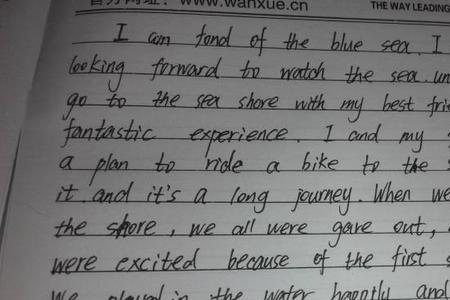 官方网址: www.wanxue.cn THE WAY LEADING
I am fond of the blue sea. I
looking forward to watch the sea. un
go to the sea shore with my best frie
fantastic experience. I and my
a plan to ride a bike to the
it. and it's a long journey. When we
the shore, we all were gave out,
were excited because of the first
We played in the water happily and